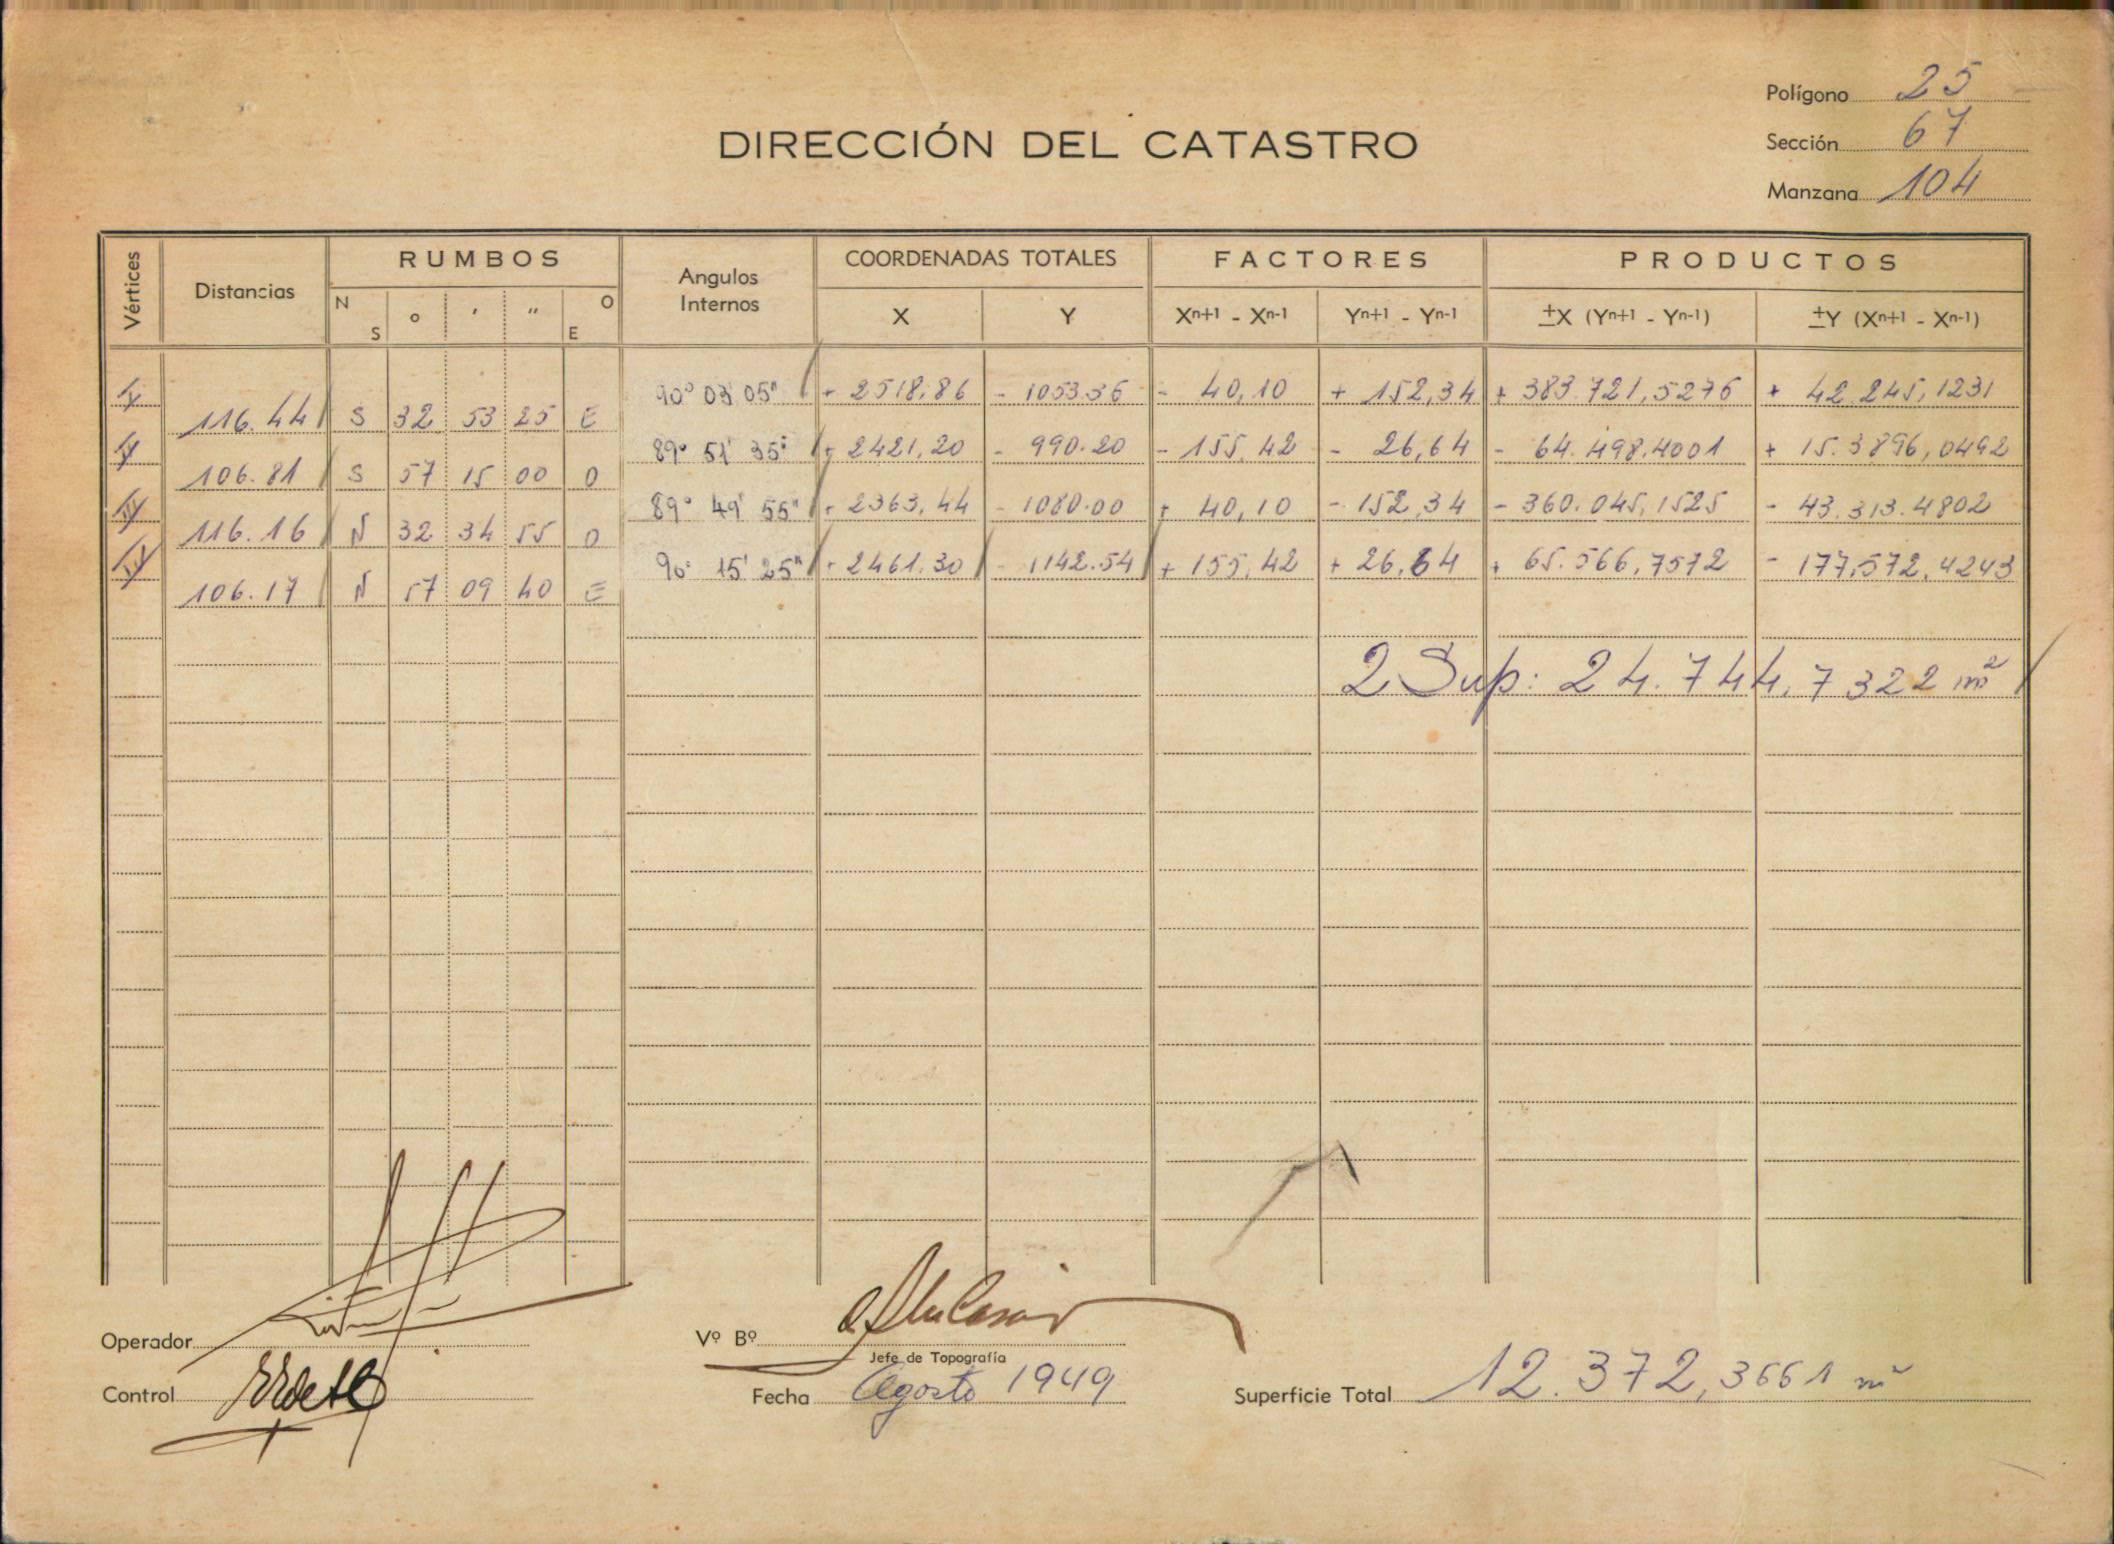 Polígono 25
DIRECCIÓN DEL CATASTRO
Sección 67
Manzana 104
Vértices Distancias RUMBOS Angulos Internos COORDENADAS TOTALES FACTORES PRODUCTOS
N S ° ' " O E X Y Xn+1 - Xn-1 Yn+1 - Yn-1 ±X (Yn+1 - Yn-1) ±Y (Xn+1 - Xn-1)
90° 03' 05" + 2518,86 - 1053.36 - 40,10 + 152,34 + 383.721,5276 + 42.245,1231
116.44 S 32 53 25 E
89° 51' 35" + 2421,20 - 990.20 - 155,42 - 26,64 - 64.498,4001 + 15.3896,0492
106.81 S 57 15 00 O
III 89° 49' 55" + 2363,44 - 1080.00 + 40,10 - 152,34 - 360.045,1525 - 43.313.4802
116.16 N 32 34 55 O
IV 90° 15' 25" + 2461.30 - 1142.54 + 155,42 + 26,64 + 65.566,7572 - 177,572,4243
106.17 N 57 09 40 E
2 Sup: 24.744,7322 m²
Operador
Vº Bº
Jefe de Topografía
Control
Fecha Agosto 1949
Superficie Total 12.372,3661 m²